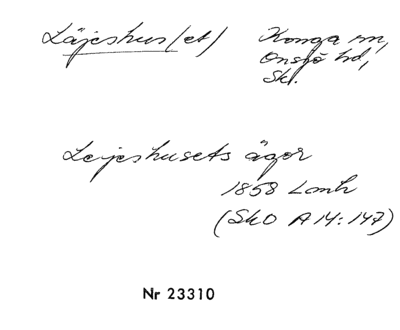 Läjeshus(et) Konga sn,
Onsjö hd,
Sk.
Leijeshusets ägor
1858 Lmh
(SkO A14:147)
Nr 23310